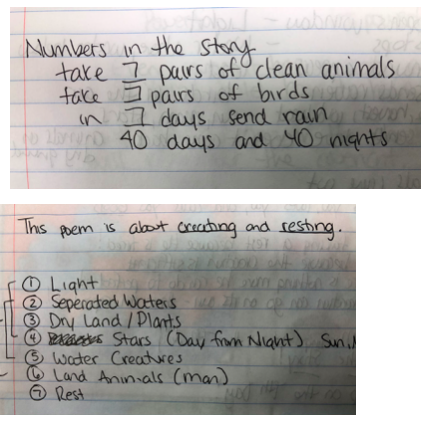 Numbers in the story
take 7 pairs of clean animals
take 7 pairs of birds
in 7 days send rain
40 days and 40 nights
This poem is about creating and resting.
① Light
② Seperated Waters
③ Dry Land / Plants
④ Stars (Day from Night) Sun,
⑤ Water Creatures
⑥ Land Animals (man)
⑦ Rest